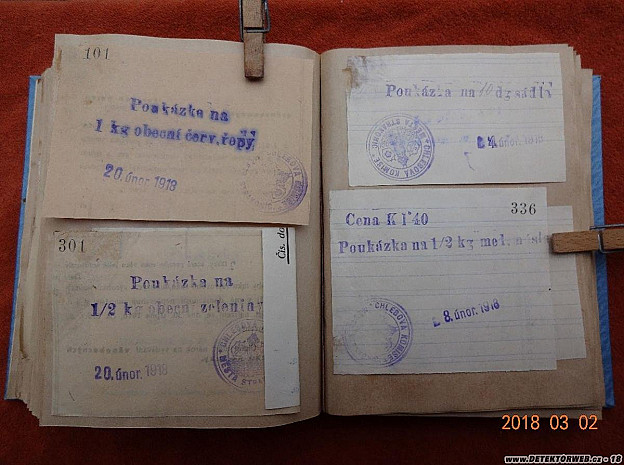 101
Poukázka na
1 kg obecní červ. řepy
20. únor. 1918
301
Poukázka na
1/2 kg obecn zeleniny
20. únor. 1918
Čís. do
Poukázka na 10 dg sádla
CHLEBOVÁ KOMISE
únor. 1918
336
Cena K 1·40
Poukázka na 1/2 kg mel.
CHLEBOVÁ KOMISE
28. únor. 1918
2018 03 02
www.DETEKTORWEB.cz - 18